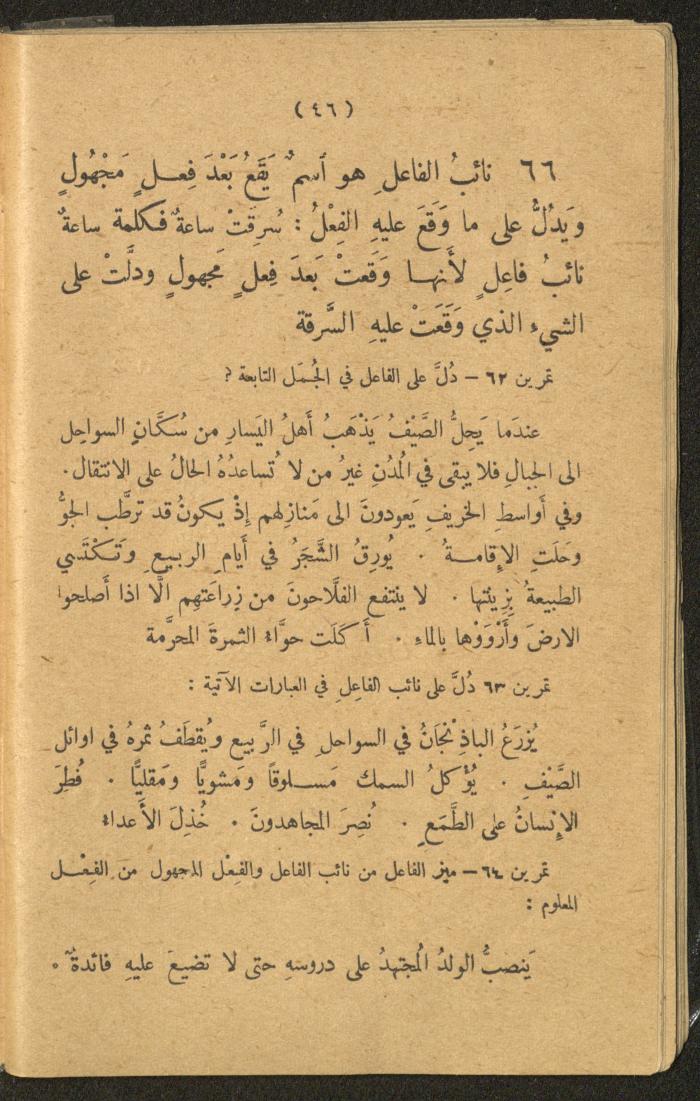 (٤٦)
٦٦ نائبُ الفاعلِ هو اَسمٌ يَقَعُ بَعْدَ فِعـلٍ مَجْهُولٍ
وَيَدُلُّ على ما وَقَعَ عليهِ الفِعْلُ : سُرِقَتْ ساعةٌ فـكلمة ساعةٌ
نائبُ فاعِلٍ لأَنهـا وَقَعتْ بَعدَ فِعلٍ مَجهولٍ ودلَّتْ على
الشيء الذي وَقَعَتْ عليهِ السَّرقة
تمرين ٦٢ – دُلَّ على الفاعل في الجُمَل التابعة ؟
عندَما يَحِلُّ الصَّيْفُ يَذْهَبُ أَهلُ اليَسارِ من سُكَّانِ السواحِل
الى الجبالِ فلا يبقى في المُدُنِ غيرُ من لا تُساعدُهُ الحالُ على الانتقال .
وفي أَواسطِ الخريفِ يَعودونَ الى مَنازِلهم إِذْ يكونُ قد ترطَّب الجوُّ
وحَلَتِ الإِقامـةُ . يُورِقُ الشَّجَرُ في أَيامِ الربيعِ وَتَكْتَسي
الطبيعةُ بزِينتها . لا ينتفع الفلَّاحونَ من زِراعَتهم الَّا اذا أَصلحوا
الارضَ وأَرْوَوْها بالماءِ . أَكَلَت حوَّاءُ الثمرةَ المحرَّمة
تمرين ٦٣ دُلَّ على نائب الفاعِلِ في العبارات الآتية :
يُزرَعُ الباذِنْجَانُ في السواحلِ في الرَّبيع ويُقطَفُ ثمرهُ في اوائل
الصَّيْفِ . يُؤْكلُ السمك مَسـلوقاً ومَشويًّا ومَقليًّا . فُطِرَ
الإِنْسانُ على الطَّمَعِ . نُصِرَ المجاهدونَ . خُذِلَ الأَعداءُ
تمرين ٦٤ – ميز الفاعل من نائب الفاعل والفِعْل المجهول من الفِعْـل
المعلوم :
يَنصبُّ الولدُ المُجتهدُ على دروسهِ حتى لا تضيعَ عليهِ فائدةٌ .